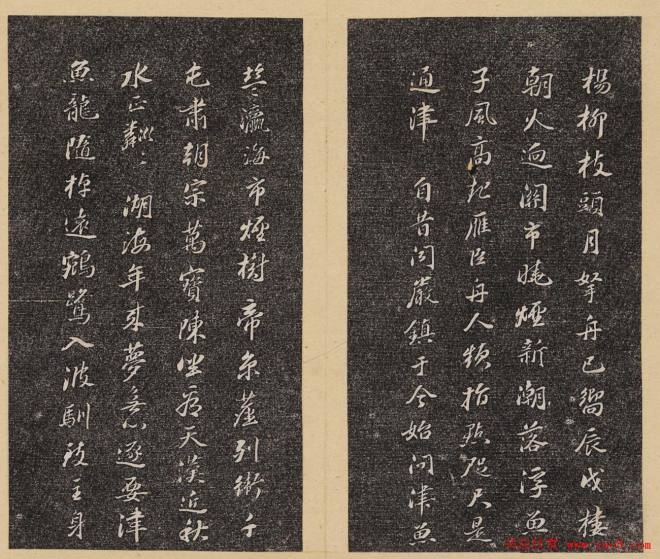 楊柳枝頭月拏舟已嚮辰戍樓
朝火逈關市曉煙新潮落浮魚
子風高起雁臣舟人頻指點咫尺是
通津 自昔聞嚴鎮于今始問津魚
茫〻瀛海市煙樹帝京塵引衛千
屯肅朝宗萬寶陳坐看天漢近秋
水正粼〻 湖海年來夢無心逐要津
魚龍隨棹遠 鷺入波馴 主身